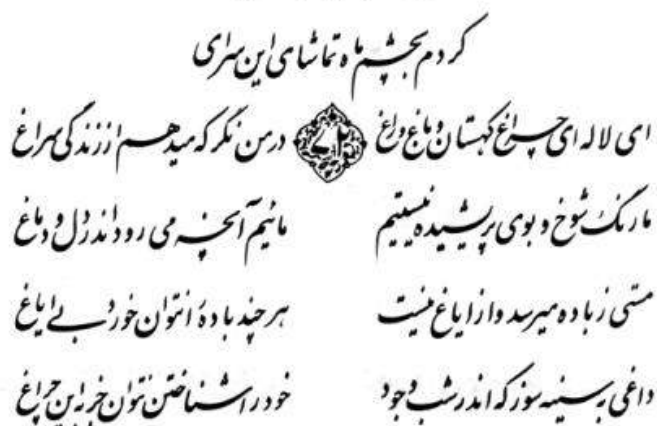 کردم بچشم ماه تماشای این سرای
ای لاله ای چراغ کهستان و باغ و راغ ۷۲ در من نگر که میدهم از زندگی سراغ
ما رنگ شوخ و بوی پریشیده نیستیم مائیم آنچه می رود اندر دل و دماغ
مستی ز باده میرسد و از ایاغ نیست هر چند باده را نتوان خورد بے ایاغ
داغی به سینه سوز که اندر شب وجود خود را شناختن نتوان جز به این چراغ